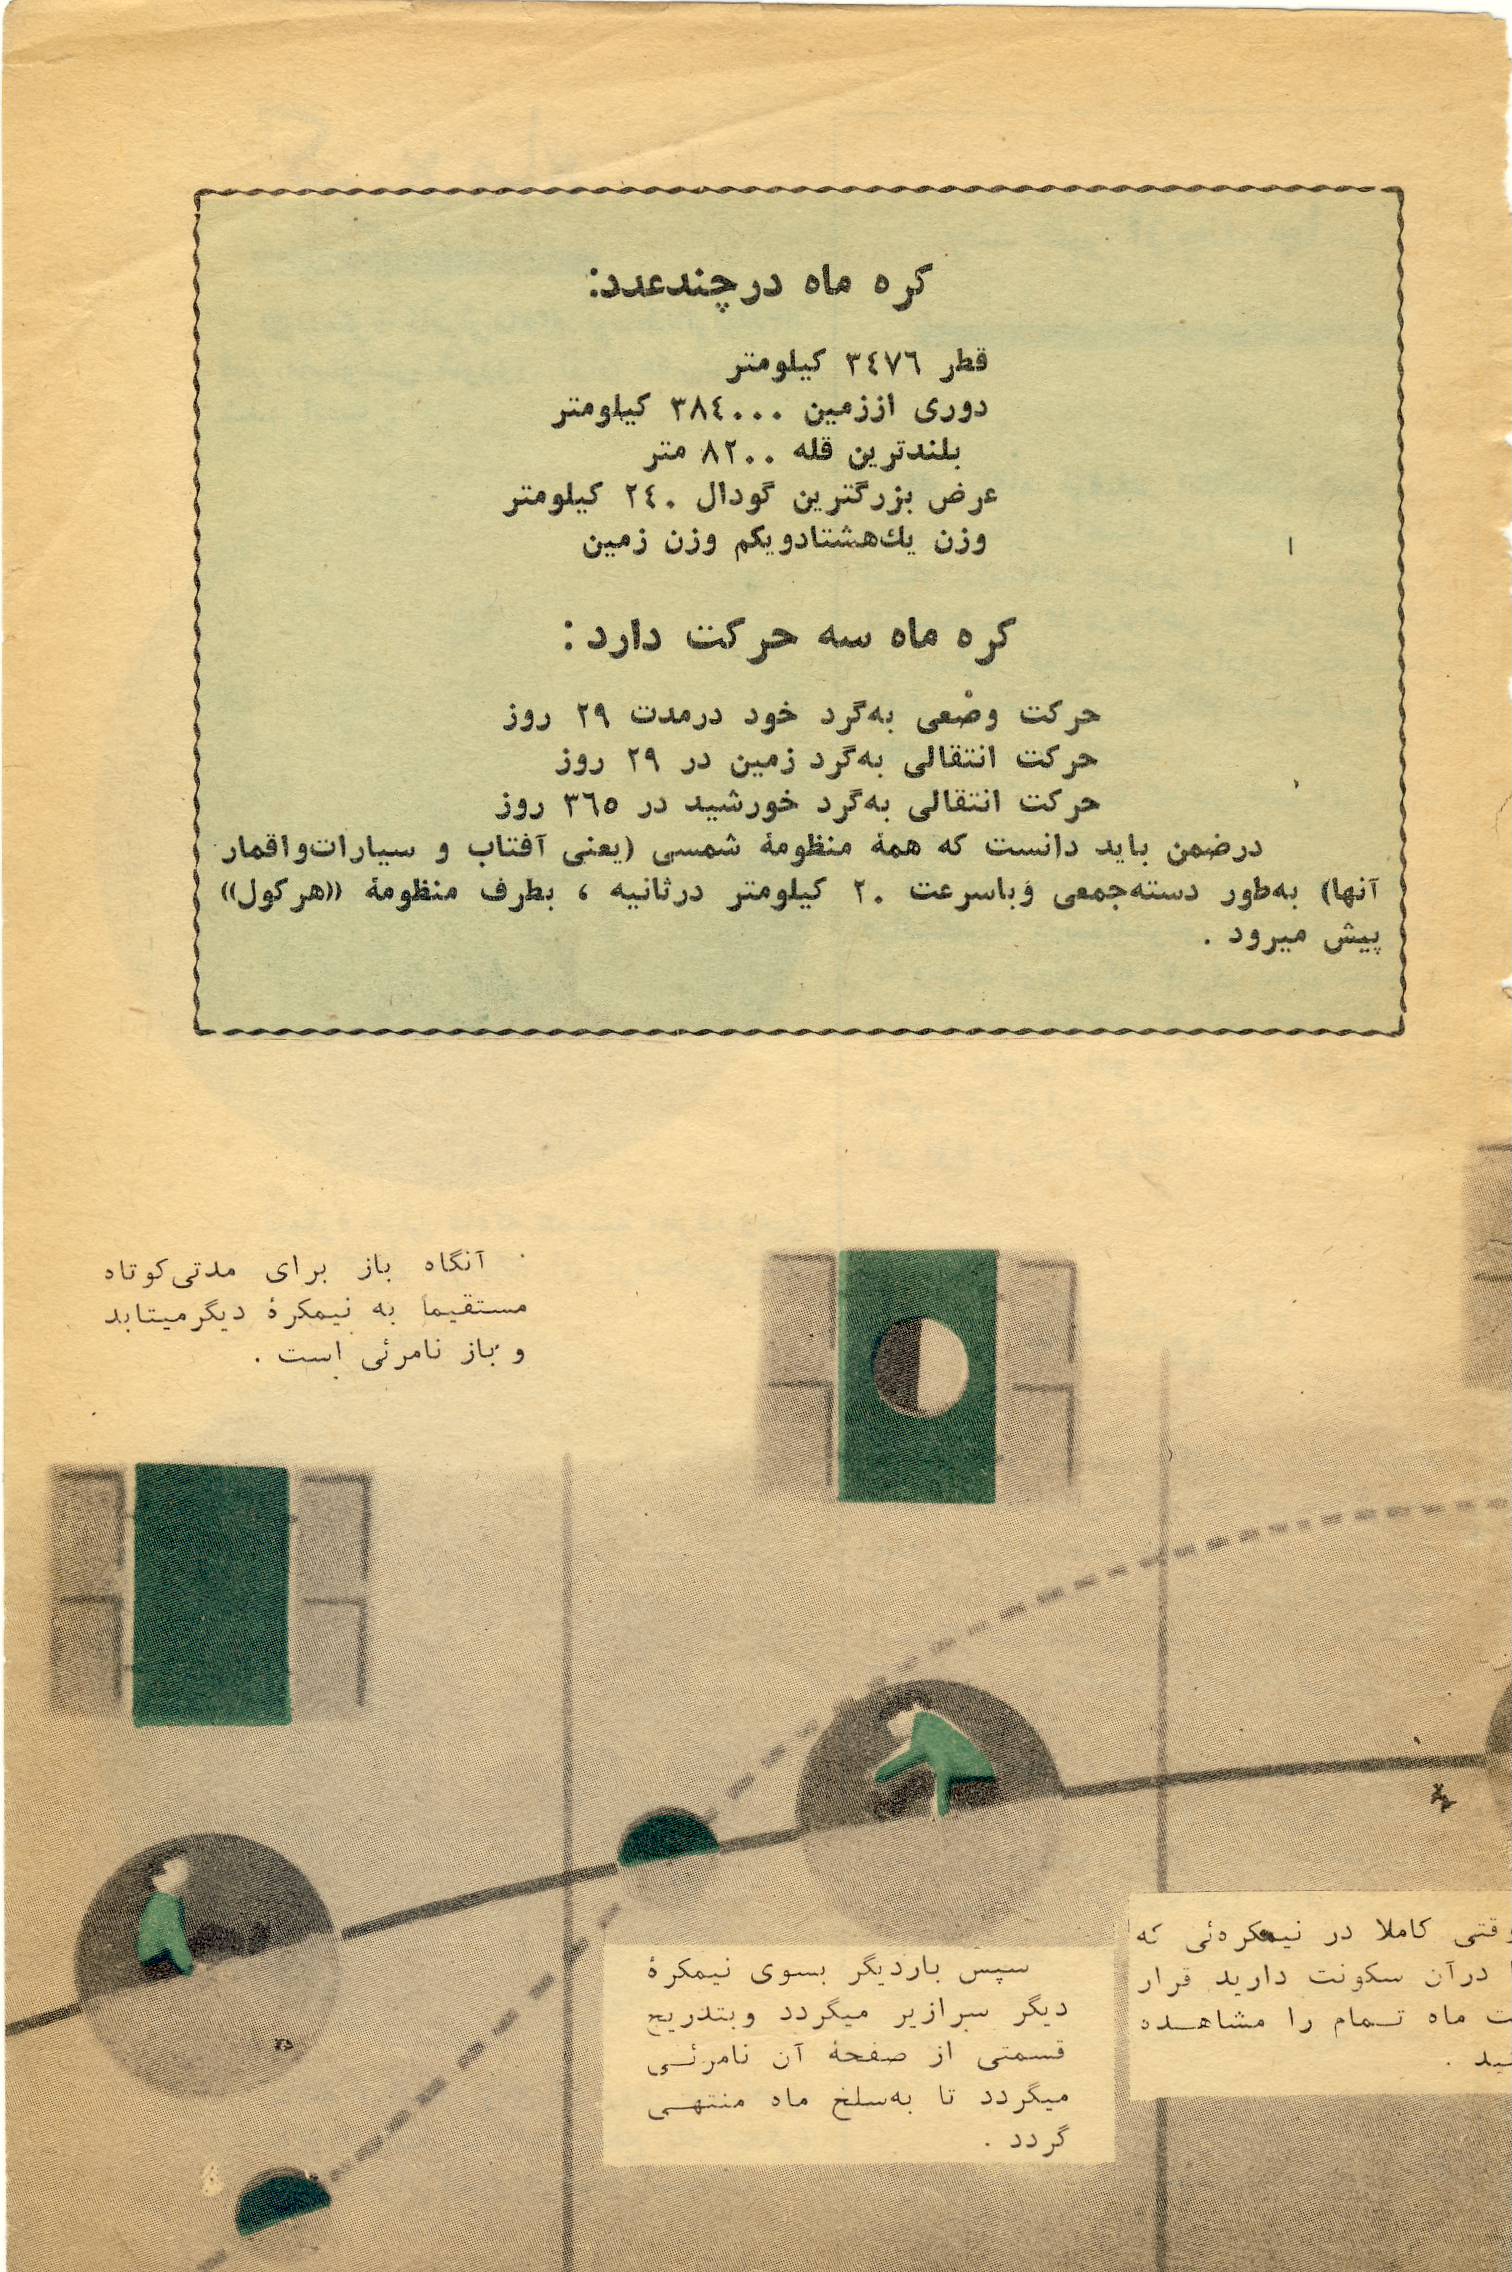 کره ماه درچندعدد:
قطر ۳٤۷٦ کیلومتر
دوری اززمین ۳۸٤۰۰۰ کیلومتر
بلندترین قله ۸۲۰۰ متر
عرض بزرگترین گودال ۲٤۰ کیلومتر
وزن یك‌هشتادویکم وزن زمین
کره ماه سه حرکت دارد :
حرکت وضعی به‌گرد خود درمدت ۲۹ روز
حرکت انتقالی به‌گرد زمین در ۲۹ روز
حرکت انتقالی به‌گرد خورشید در ۳٦٥ روز
درضمن باید دانست که همهٔ منظومهٔ شمسی (یعنی آفتاب و سیارات‌واقمار
آنها) به‌طور دسته‌جمعی وباسرعت ۲۰ کیلومتر درثانیه ، بطرف منظومهٔ «هرکول»
پیش میرود .
آنگاه باز برای مدتی‌کوتاه
مستقیما به نیمکرهٔ دیگرمیتابد
و باز نامرئی است .
قتی کاملا در نیمکره‌ئی که
درآن سکونت دارید قرار
ماه تمام را مشاهده
سپس باردیگر بسوی نیمکرهٔ
دیگر سرازیر میگردد وبتدریج
قسمتی از صفحهٔ آن نامرئی
میگردد تا به‌سلخ ماه منتهی
گردد .